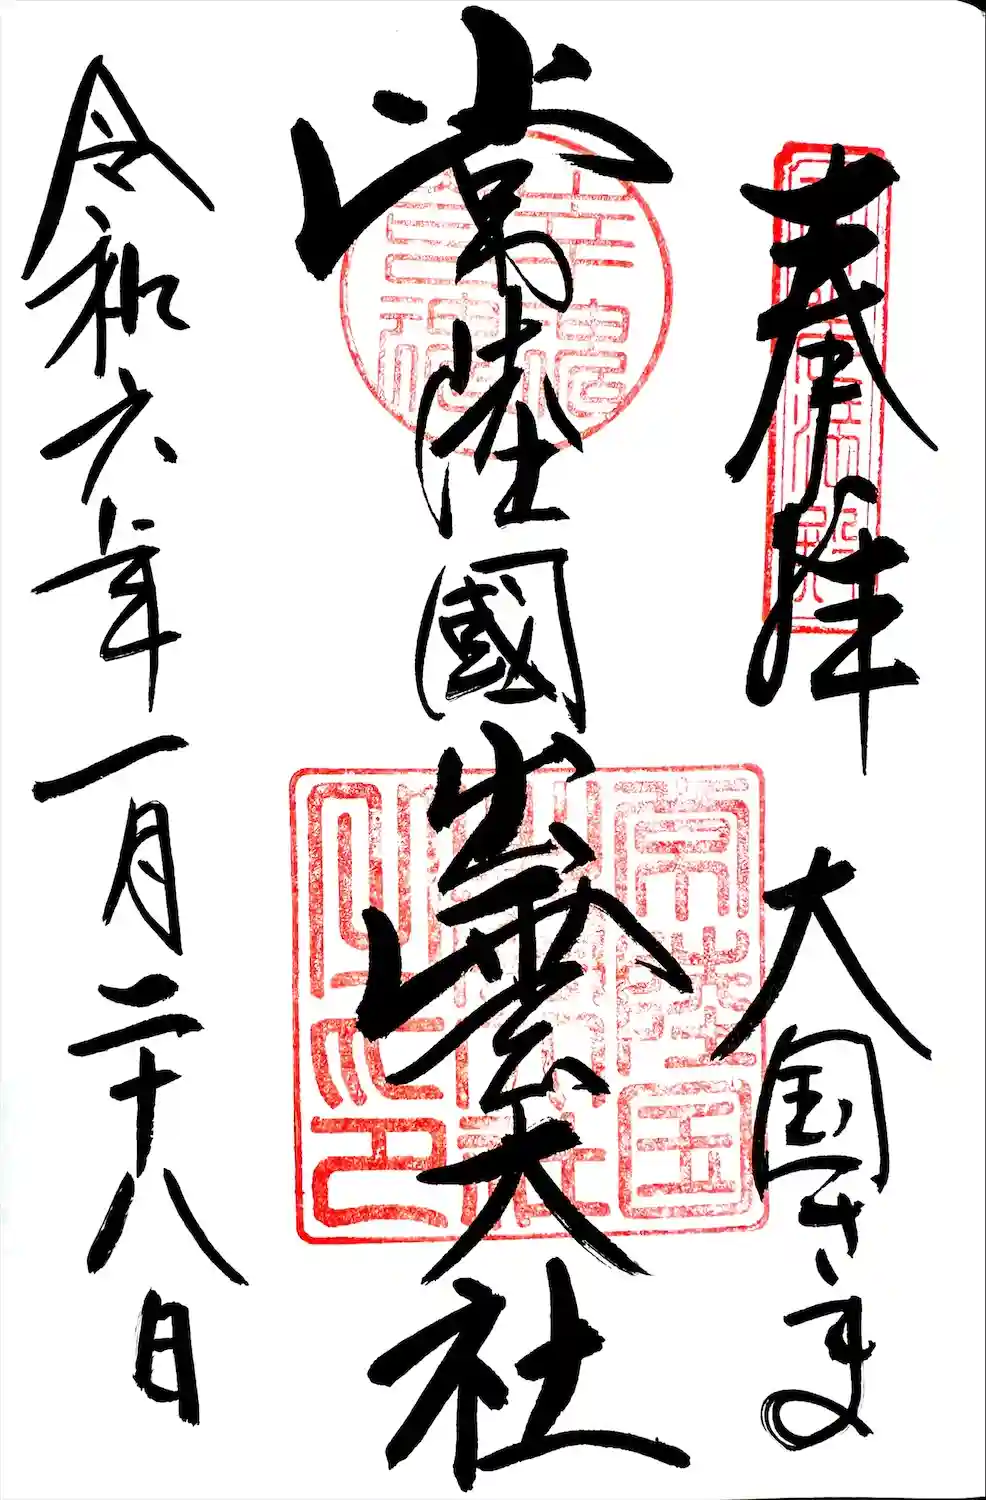 奉拝 大国さま
常陸國出雲大社
令和六年一月二十八日
幸魂
奇魂
常陸国
出雲大社
之印